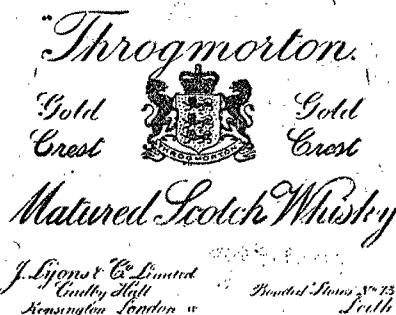 "Throgmorton.
Gold Crest
Gold Crest
THROGMORTON
Matured Scotch Whisky
J. Lyons & Co Limited
Cadby Hall
Kensington London W
Bonded Stores No 73
Leith